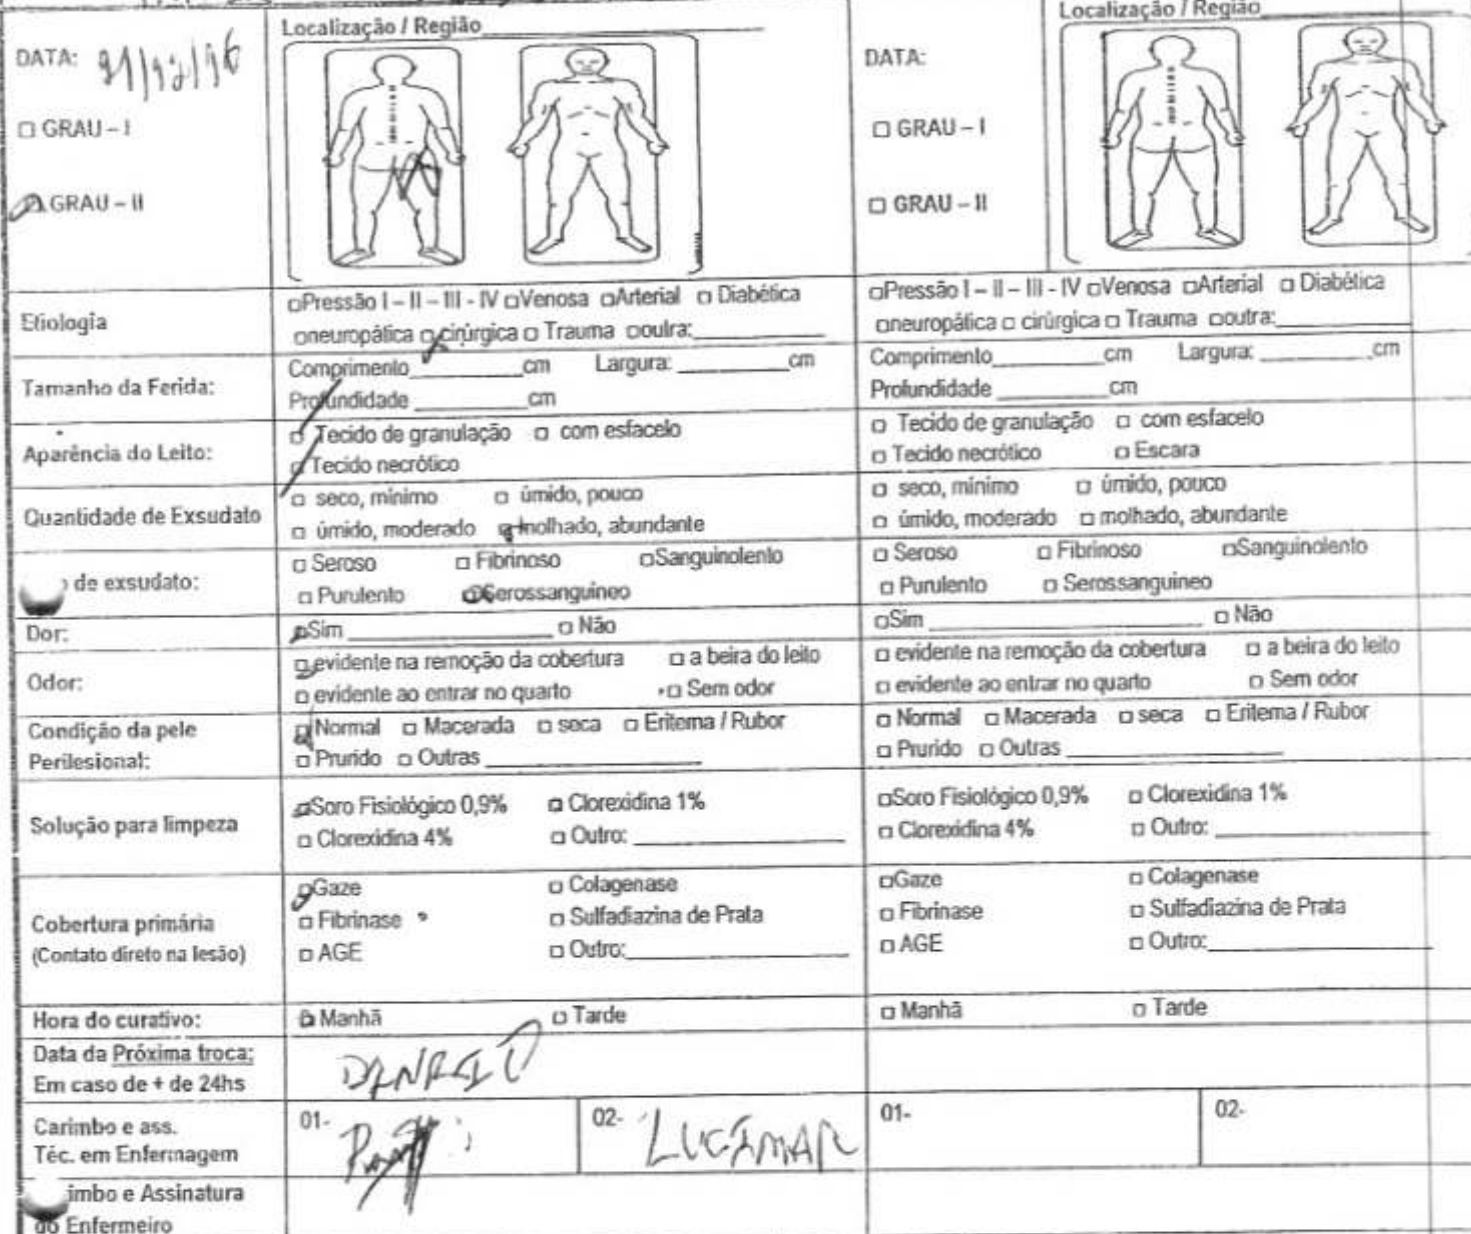 Localização / Região
Localização / Região
DATA: 
DATA:
□ GRAU – I
□ GRAU – I
□ GRAU – II
□ GRAU – II
Etiologia
□Pressão I – II – III - IV □Venosa □Arterial □ Diabética
□neuropática □ cirúrgica □ Trauma □outra:
□Pressão I – II – III - IV □Venosa □Arterial □ Diabética
□neuropática □ cirúrgica □ Trauma □outra:
Tamanho da Ferida:
Comprimento cm Largura: cm
Profundidade cm
Comprimento cm Largura: cm
Profundidade cm
Aparência do Leito:
□ Tecido de granulação □ com esfacelo
□ Tecido necrótico
□ Tecido de granulação □ com esfacelo
□ Tecido necrótico □ Escara
Quantidade de Exsudato
□ seco, mínimo □ úmido, pouco
□ úmido, moderado □ molhado, abundante
□ seco, mínimo □ úmido, pouco
□ úmido, moderado □ molhado, abundante
de exsudato:
□ Seroso □ Fibrinoso □Sanguinolento
□ Purulento □Serossanguíneo
□ Seroso □ Fibrinoso □Sanguinolento
□ Purulento □ Serossanguíneo
Dor:
□Sim □ Não
□Sim □ Não
Odor:
□ evidente na remoção da cobertura □ a beira do leito
□ evidente ao entrar no quarto □ Sem odor
□ evidente na remoção da cobertura □ a beira do leito
□ evidente ao entrar no quarto □ Sem odor
Condição da pele
Perilesional:
□ Normal □ Macerada □ seca □ Eritema / Rubor
□ Prurido □ Outras
□ Normal □ Macerada □ seca □ Eritema / Rubor
□ Prurido □ Outras
Solução para limpeza
□Soro Fisiológico 0,9% □ Clorexidina 1%
□ Clorexidina 4% □ Outro:
□Soro Fisiológico 0,9% □ Clorexidina 1%
□ Clorexidina 4% □ Outro:
Cobertura primária
(Contato direto na lesão)
□Gaze □ Colagenase
□ Fibrinase □ Sulfadiazina de Prata
□ AGE □ Outro:
□Gaze □ Colagenase
□ Fibrinase □ Sulfadiazina de Prata
□ AGE □ Outro:
Hora do curativo:
□ Manhã □ Tarde
□ Manhã □ Tarde
Data da Próxima troca;
Em caso de + de 24hs
Carimbo e ass.
Téc. em Enfermagem
01-
02- LUCIMAR
01-
02-
imbo e Assinatura
do Enfermeiro